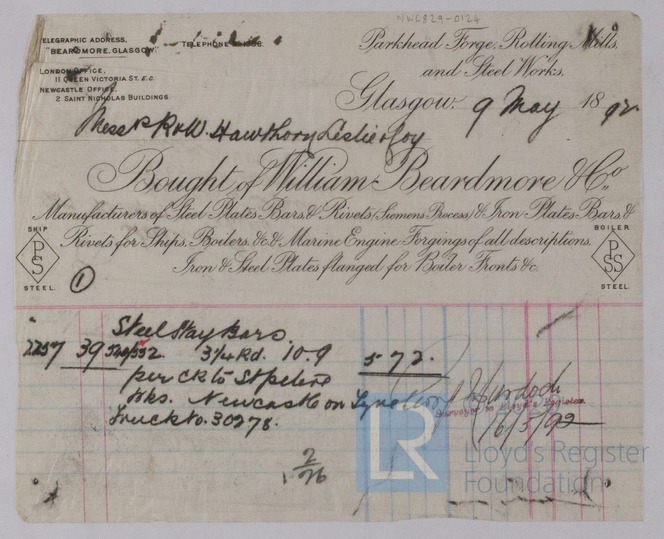 NWC829-0124
TELEGRAPHIC ADDRESS,
"BEARDMORE, GLASGOW."
TELEPHONE
LONDON OFFICE,
11 QUEEN VICTORIA ST. E.C.
NEWCASTLE OFFICE,
2 SAINT NICHOLAS BUILDINGS
Parkhead Forge, Rolling Mills,
and Steel Works,
Glasgow, 9 May 1892
Messrs R&W. Hawthorn Leslie & Coy
Bought of William Beardmore & Co.,
Manufacturers of Steel Plates Bars & Rivets (Siemens Process) & Iron Plates Bars &
Rivets for Ships, Boilers, &c & Marine Engine Forgings of all descriptions.
Iron & Steel Plates flanged for Boiler Fronts &c.
SHIP
PS
STEEL.
BOILER
PSS
STEEL.
1
Steel Stay Bars
2257 39 520/552 3¼ Rd. 10.9 572.
per Ck to St peters
Wks. Newcastle on Tyne
Truck No. 30278.
Murdoch
Surveyor to Lloyd's Register.
16/5/92
2
LR
Lloyd's Register
Foundation